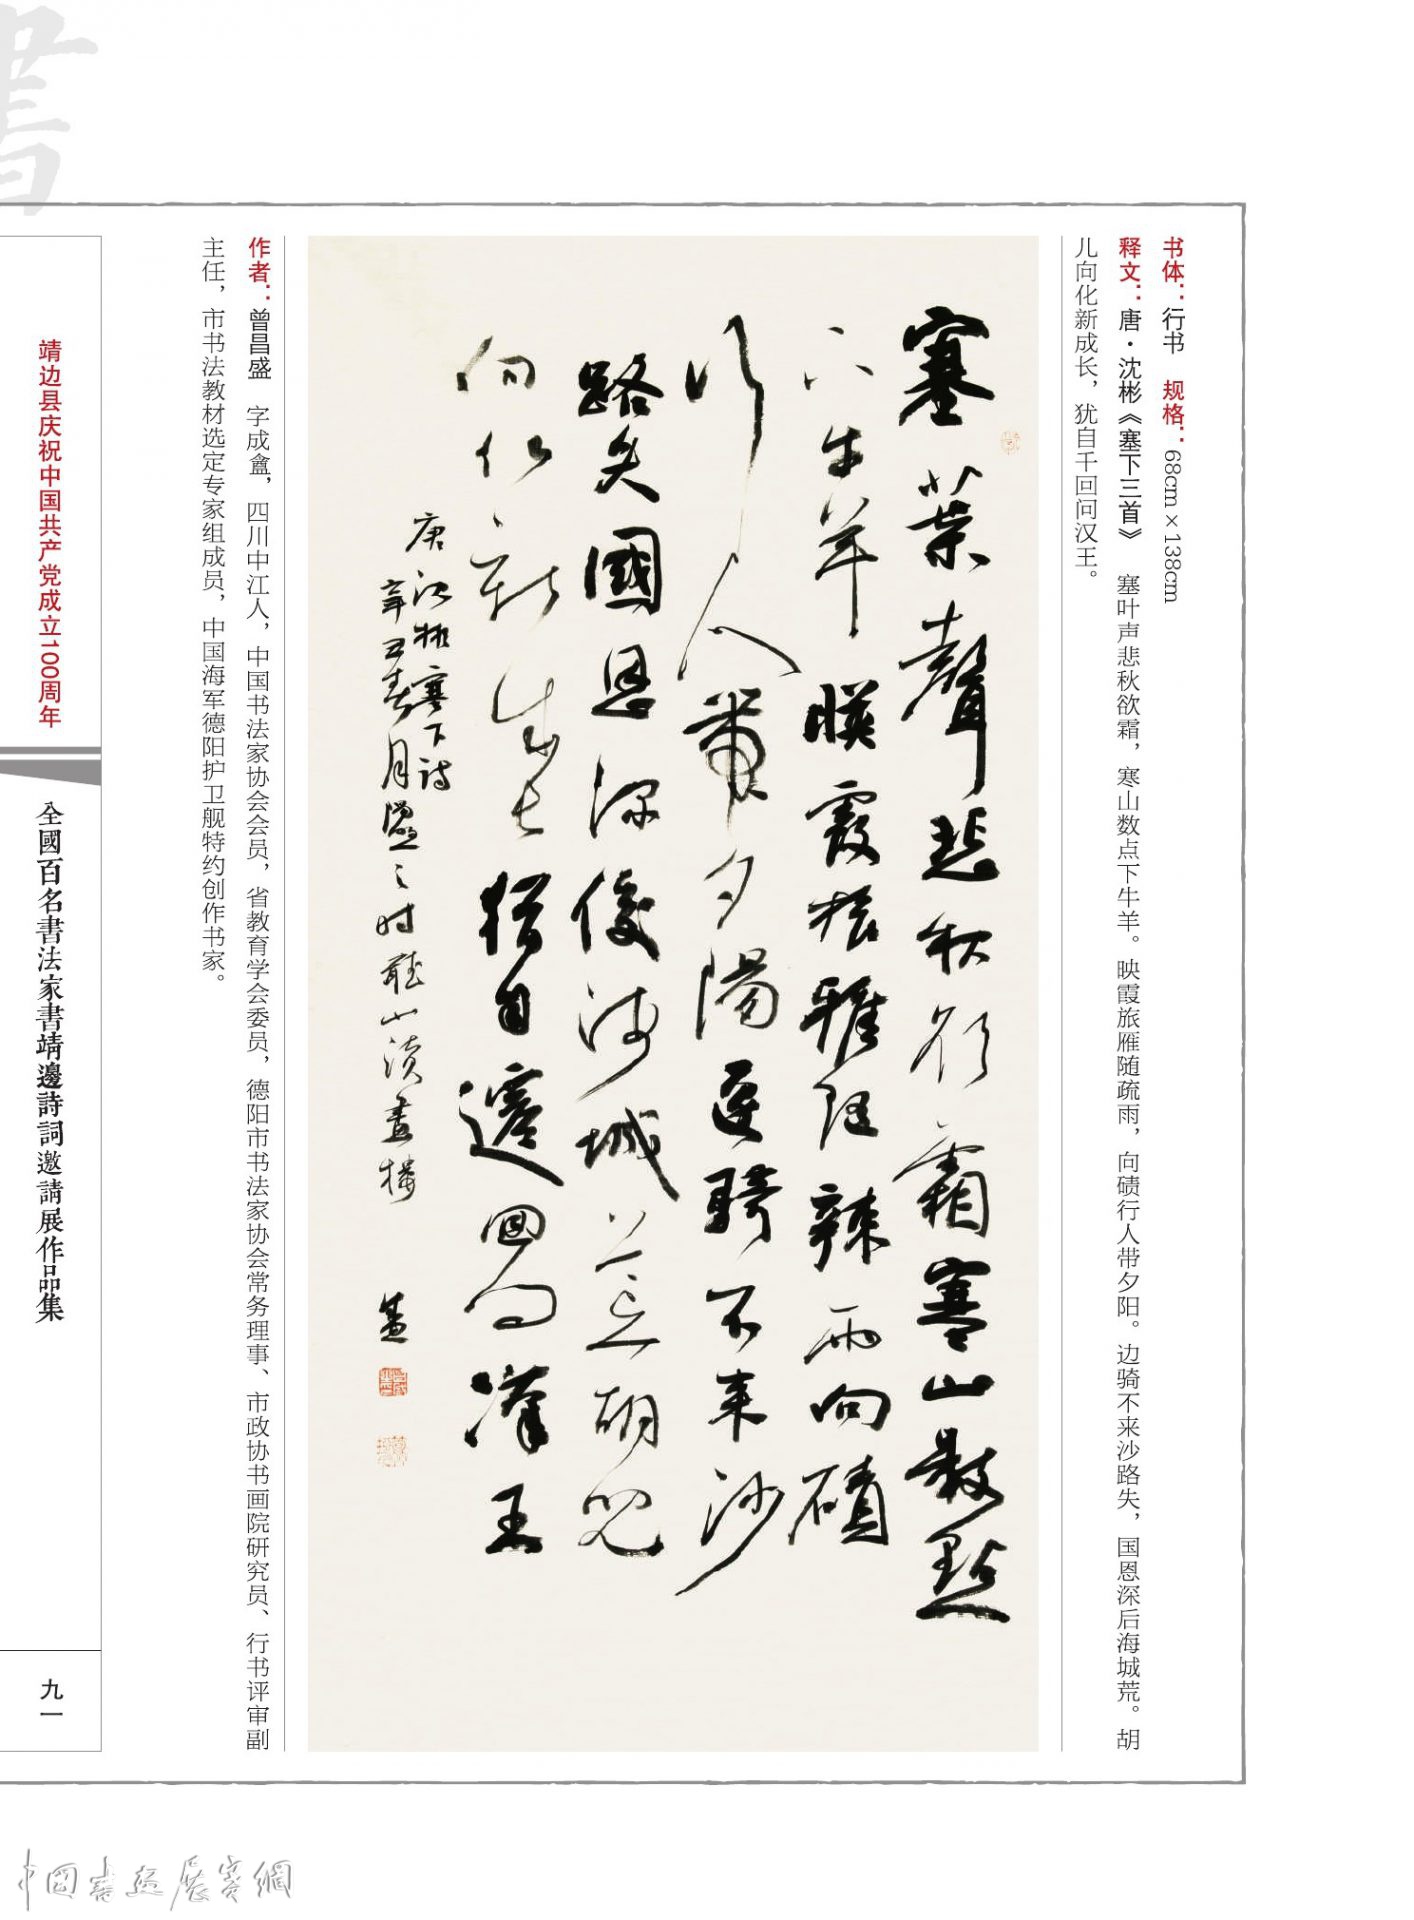 书体：行书　规格：68cm×138cm
释文：唐·沈彬《塞下三首》　塞叶声悲秋欲霜，寒山数点下牛羊。映霞旅雁随疏雨，向碛行人带夕阳。边骑不来沙路失，国恩深后海城荒。胡
儿向化新成长，犹自千回问汉王。
塞葉聲悲秋欲霜寒山數點
下牛羊暎霞旅雁随疎雨向磧
行人帶夕陽邊騎不來沙
路失國恩深後海城荒胡兒
向化新成长猶自回問漢王
唐沈彬塞下詩
辛丑春月盛之时山讀畫樓 盛
作者：曾昌盛　字成盦，四川中江人，中国书法家协会会员，省教育学会委员，德阳市书法家协会常务理事、市政协书画院研究员、行书评审副
主任，市书法教材选定专家组成员，中国海军德阳护卫舰特约创作书家。
靖边县庆祝中国共产党成立100周年
全國百名書法家書靖邊詩詞邀請展作品集
九一
書
中國書画展赛網